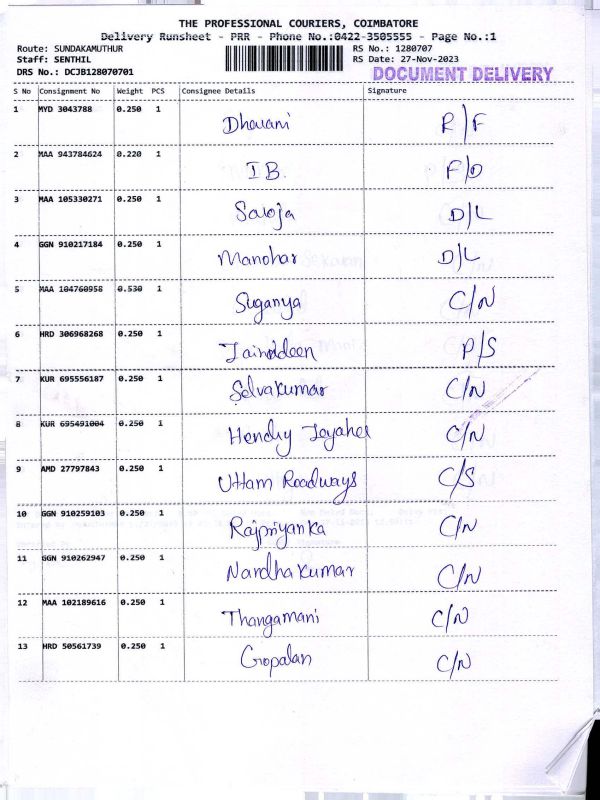 THE PROFESSIONAL COURIERS, COIMBATORE
Delivery Runsheet - PRR - Phone No.:0422-3505555 - Page No.:1
Route: SUNDAKAMUTHUR RS No.: 1280707
Staff: SENTHIL RS Date: 27-Nov-2023
DRS No.: DCJB128070701 DOCUMENT DELIVERY
S No Consignment No Weight PCS Consignee Details Signature
1 MYD 3043788 0.250 1 Dharani R/F
2 MAA 943784624 0.220 1 I B. F/D
3 MAA 105330271 0.250 1 Saroja D/L
4 GGN 910217184 0.250 1 Manohar D/L
5 MAA 104760958 0.530 1 Suganya C/N
6 HRD 306968268 0.250 1 P/S
7 KUR 695556187 0.250 1 Selvakumar C/N
8 KUR 695491004 0.250 1 Hendry C/N
9 AMD 27797843 0.250 1 Uttam Roadways C/S
10 GGN 910259103 0.250 1 Rajpriyanka C/N
11 GGN 910262947 0.250 1 Nandhakumar C/N
12 MAA 102189616 0.250 1 Thangamani C/N
13 HRD 50561739 0.250 1 Gopalan C/N